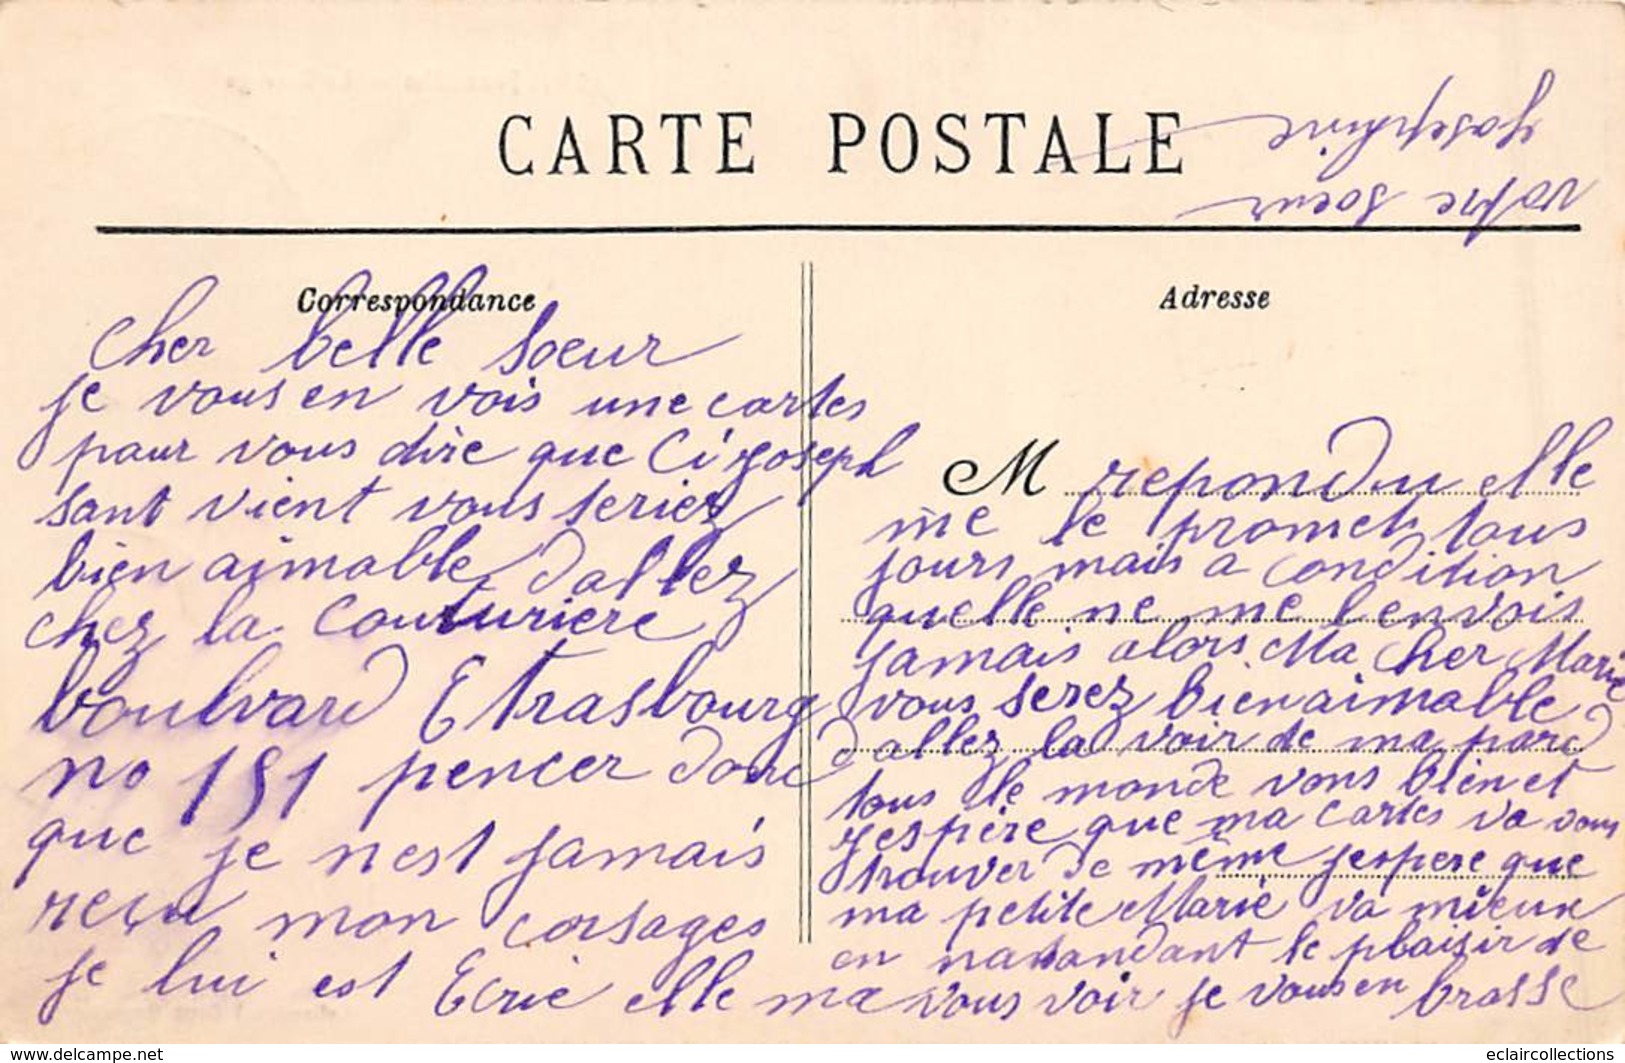 CARTE POSTALE
Correspondance
Cher belle soeur
je vous en vois une cartes
pour vous dire que Ci joseph
sant vient vous seriez
bien aimable dallez
chez la Couturiere
boulvard Etrasbourg
no 151 pencer donc
que je nest jamais
reçu mon corsages
je lui est Ecrie elle ma
Adresse
M repondu elle
me le promet tous
jours mais a condition
quelle ne me l envois
jamais alors Ma Cher Marie
vous serez bien aimable
dallez la voir de ma pard
tous le monde vous bien et
jespère que ma cartes va vous
trouver de même jespere que
ma petite Marie va mieux
en natandant le plaisir de
vous voir je vous en brasse
votre soeur
Josephine
www.delcampe.net
eclaircollections